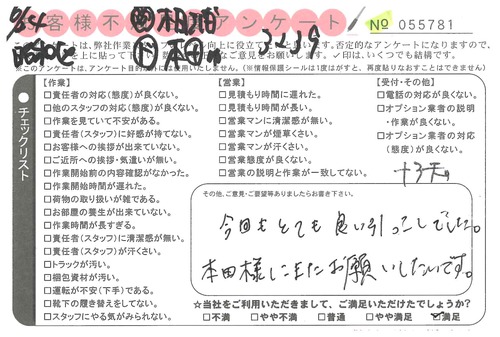 お客様不満足アンケート
No 055781
アンケートは、弊社作業
向上に役立て
否定的なアンケートになりますので、
ご意見をお願いします。✓印は、いくつでも結構です。
※このアンケートは、アンケート目的
には使用いたしません。(※情報保護シールは1度はがすと、再度貼りなおすことはできません)
チェックリスト
【作業】
□責任者の対応(態度)が良くない。
□他のスタッフの対応(態度)が良くない。
□作業を見ていて不安がある。
□責任者(スタッフ)に好感が持てない。
□お客様への挨拶が出来ていない。
□ご近所への挨拶・気遣いが無い。
□作業開始前の内容確認がなかった。
□作業開始時間が遅れた。
□荷物の取り扱いが雑である。
□お部屋の養生が出来ていない。
□作業時間が長すぎる。
□責任者(スタッフ)に清潔感が無い。
□責任者(スタッフ)が汗くさい。
□トラックが汚い。
□梱包資材が汚い。
□運転が不安(下手)である。
□靴下の履き替えをしてない。
□スタッフにやる気がみられない。
【営業】
□見積もり時間に遅れた。
□見積もり時間が長い。
□営業マンに清潔感が無い。
□営業マンが煙草くさい。
□営業マンが汗くさい。
□営業態度が良くない。
□営業の説明と作業が一致してない。
【受付・その他】
□電話の対応が良くない。
□オプション業者の説明
・作業が良くない。
□オプション業者の対応
(態度)が良くない。
その他、ご意見・ご要望等ありましたらお書き下さい。
今回もとても良い引っこしでした。
本田様にまたお願いしたいです。
☆当社をご利用いただきまして、ご満足いただけたでしょうか?
□不満 □やや不満 □普通 □やや満足 ☑満足